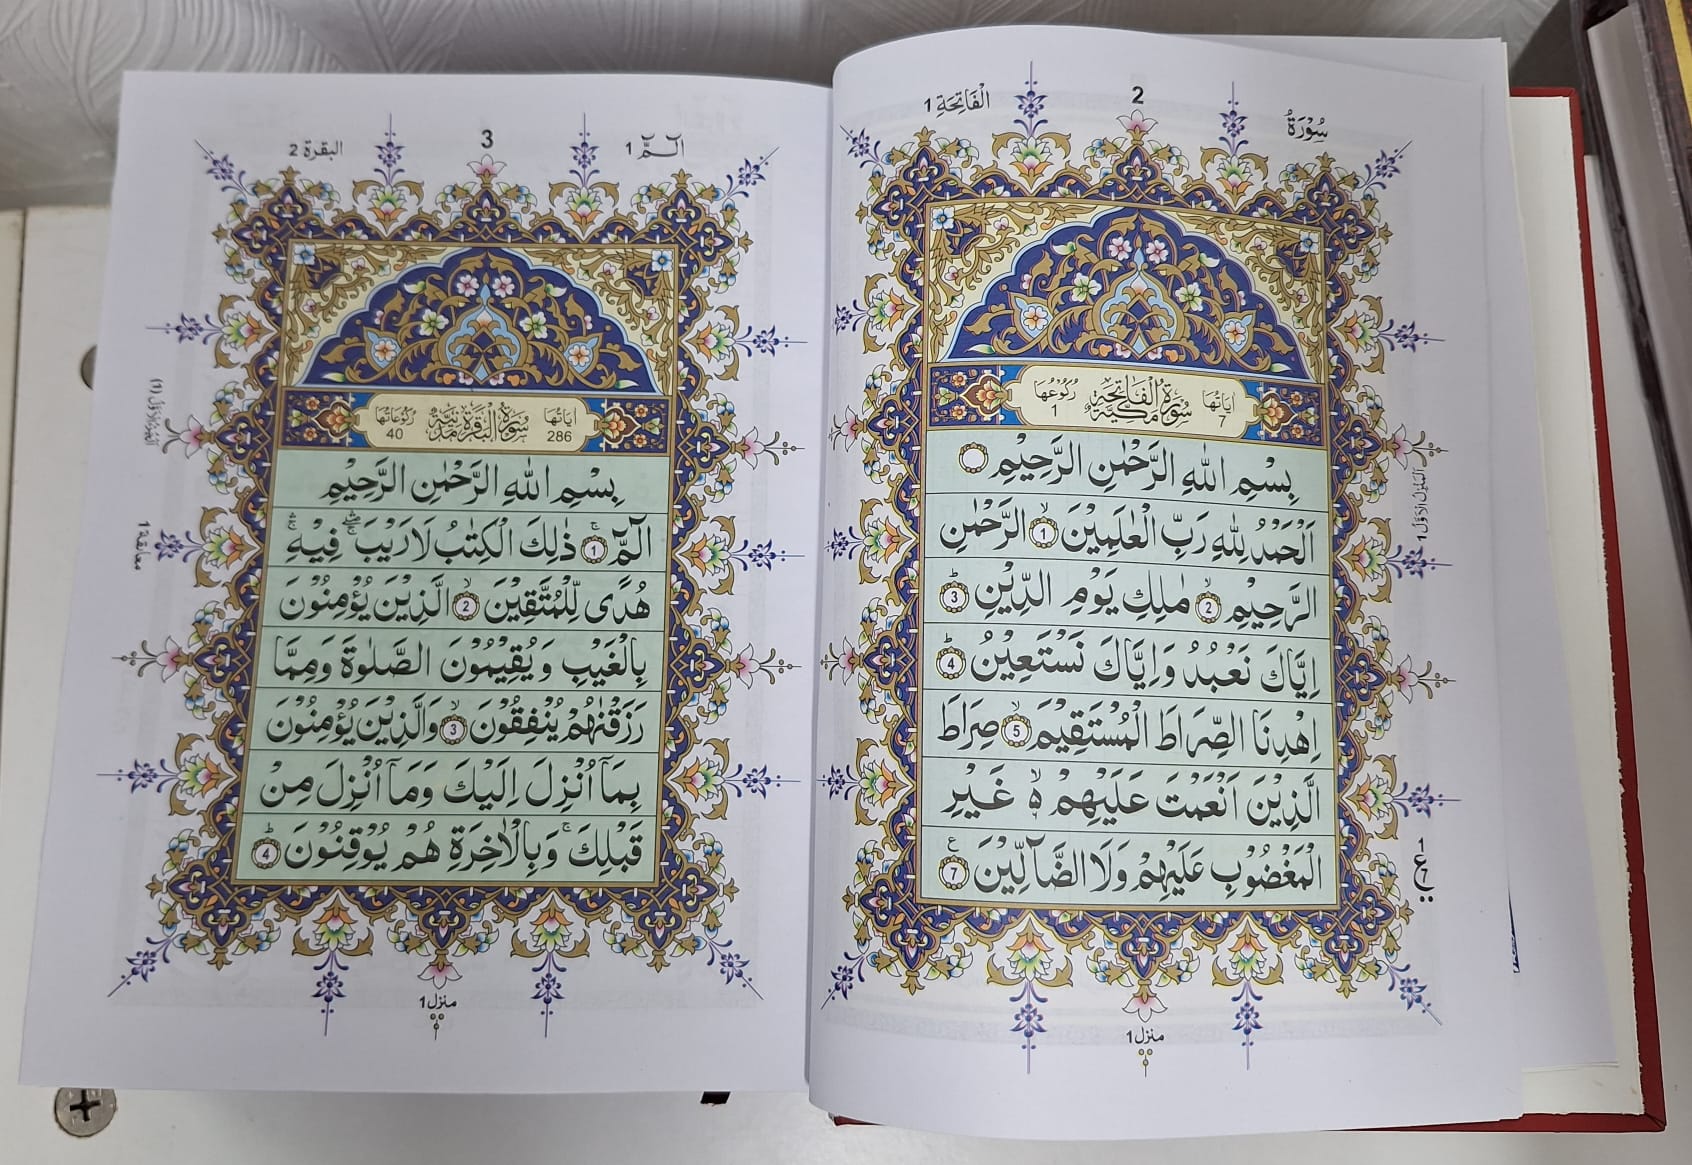 سُوْرَةُ
2
الْفَاتِحَةِ 1
اٰيَاتُهَا 7
سُوْرَةُ الْفَاتِحَةِ مَكِّيَّةٌ
رُكُوْعُهَا 1
بِسْمِ اللّٰهِ الرَّحْمٰنِ الرَّحِيْمِ
اَلْحَمْدُ لِلّٰهِ رَبِّ الْعٰلَمِيْنَ ۙ 1 الرَّحْمٰنِ
الرَّحِيْمِ ۙ 2 مٰلِكِ يَوْمِ الدِّيْنِ ؕ 3
اِيَّاكَ نَعْبُدُ وَاِيَّاكَ نَسْتَعِيْنُ ؕ 4
اِهْدِنَا الصِّرَاطَ الْمُسْتَقِيْمَ ۙ 5 صِرَاطَ
الَّذِيْنَ اَنْعَمْتَ عَلَيْهِمْ ۙ۬ۦ غَيْرِ
الْمَغْضُوْبِ عَلَيْهِمْ وَلَا الضَّآلِّيْنَ ع 7
اَلْمَنْزِلُ الْاَوَّلُ 1
1
ع
7
منزل 1
الٓمّٓ 1
3
البقرة 2
اٰيَاتُهَا 286
سُوْرَةُ الْبَقَرَةِ مَدَنِيَّةٌ
رُكُوْعَاتُهَا 40
بِسْمِ اللّٰهِ الرَّحْمٰنِ الرَّحِيْمِ
الٓمّٓ ۚ 1 ذٰلِكَ الْكِتٰبُ لَا رَيْبَ ۛۖ فِيْهِ ۛۚ
هُدًى لِّلْمُتَّقِيْنَ ۙ 2 الَّذِيْنَ يُؤْمِنُوْنَ
بِالْغَيْبِ وَيُقِيْمُوْنَ الصَّلٰوةَ وَمِمَّا
رَزَقْنٰهُمْ يُنْفِقُوْنَ ۙ 3 وَالَّذِيْنَ يُؤْمِنُوْنَ
بِمَآ اُنْزِلَ اِلَيْكَ وَمَآ اُنْزِلَ مِنْ
قَبْلِكَ ۚ وَبِالْاٰخِرَةِ هُمْ يُوْقِنُوْنَ ؕ 4
اَلْجُزْءُ الْاَوَّلُ (1)
معانقة 1
منزل 1